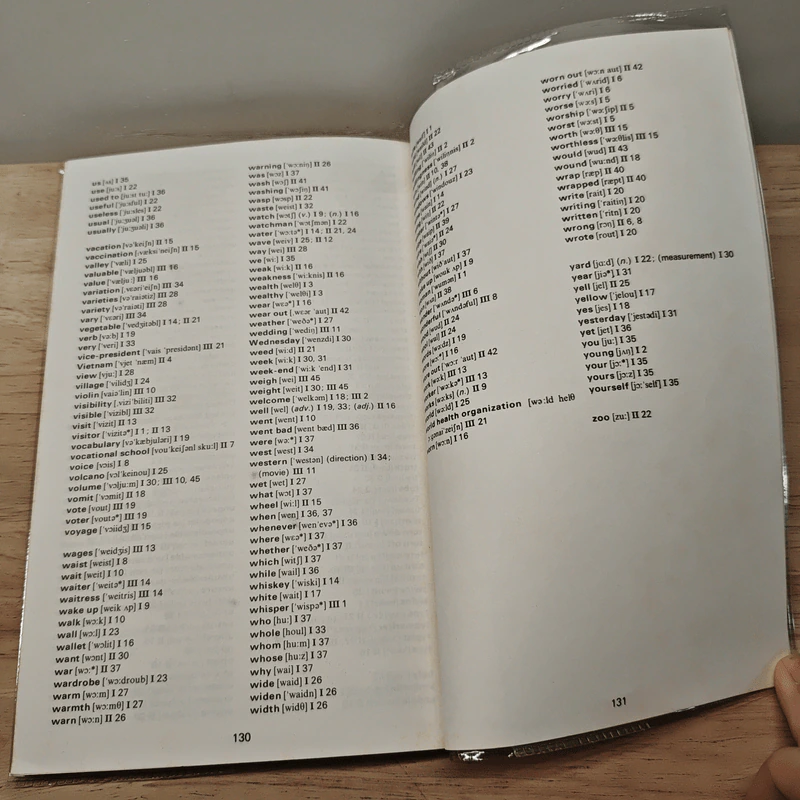 us [ʌs] I 35
use [ju:s] I 22
used to [ju:st tu:] I 36
useful ['ju:sful] II 22
useless ['ju:sles] II 22
usual ['ju:ʒuəl] I 36
usually ['ju:ʒuəli] I 36
vacation [və'keiʃn] II 15
vaccination [ˌvæksi'neiʃn] II 41
valley ['væli] I 25
valuable ['væljuəbl] III 16
value ['vælju:] III 16
variation [ˌveəri'eiʃn] III 34
varieties [və'raiətiz] III 28
variety [və'raiəti] III 28
vary ['veəri] III 34
vegetable ['vedʒitəbl] I 14; II 21
verb [və:b] I 19
very ['veri] I 33
vice-president ['vais 'president] III 21
Vietnam ['vjet 'næm] II 4
view [vju:] I 28
village ['vilidʒ] I 24
violin [vaiə'lin] III 10
visibility [ˌvizi'biliti] III 32
visible ['vizibl] III 32
visit ['vizit] II 13
visitor ['vizitə*] I 1; II 13
vocabulary [və'kæbjuləri] I 19
vocational school [vou'keiʃənl sku:l] II 7
voice [vɔis] I 8
volcano [vɔl'keinou] I 25
volume ['vɔlju:m] I 30; III 10, 45
vomit ['vɔmit] II 18
vote [vout] III 19
voter [voutə*] III 19
voyage ['vɔiidʒ] II 15
wages ['weidʒis] III 13
waist [weist] I 8
wait [weit] I 10
waiter ['weitə*] III 14
waitress ['weitris] III 14
wake up [weik ʌp] I 9
walk [wɔ:k] I 10
wall [wɔ:l] I 23
wallet ['wɔlit] I 16
want [wɔnt] II 30
war [wɔ:*] II 37
wardrobe ['wɔ:droub] I 23
warm [wɔ:m] I 27
warmth [wɔ:mθ] I 27
warn [wɔ:n] II 26
warning ['wɔ:niŋ] II 26
was [wɔz] I 37
wash [wɔʃ] II 41
washing ['wɔʃiŋ] II 41
wasp [wɔsp] II 22
waste [weist] I 32
watch [wɔtʃ] (v.) I 9; (n.) I 16
watchman ['wɔtʃmən] I 22
water ['wɔ:tə*] I 14; II 21, 24
wave [weiv] I 25; II 12
way [wei] III 28
we [wi:] I 35
weak [wi:k] II 16
weakness ['wi:knis] II 16
wealth [welθ] I 3
wealthy ['welθi] I 3
wear [weə*] I 16
wear out [ˌweər 'aut] II 42
weather ['weðə*] I 27
wedding ['wediŋ] III 11
Wednesday ['wenzdi] I 30
weed [wi:d] II 21
week [wi:k] I 30, 31
week-end ['wi:k 'end] I 31
weigh [wei] III 45
weight [weit] I 30; III 45
welcome ['welkəm] I 18; III 2
well [wel] (adv.) I 19, 33; (adj.) II 16
went [went] I 10
went bad [went bæd] III 36
were [wə:*] I 37
west [west] I 34
western ['westən] (direction) I 34;
(movie) III 11
wet [wet] I 27
what [wɔt] I 37
wheel [wi:l] II 15
when [wen] I 36, 37
whenever [wen'evə*] I 36
where [weə*] I 37
whether ['weðə*] I 37
which [witʃ] I 37
while [wail] I 36
whiskey ['wiski] I 14
white [wait] I 17
whisper ['wispə*] III 1
who [hu:] I 37
whole [houl] I 33
whom [hu:m] I 37
whose [hu:z] I 37
why [wai] I 37
wide [waid] I 26
widen ['waidn] I 26
width [widθ] I 26
130
I 1
II 22
II 43
II 2
II 2
II 10, 38
(n.) I 27
I 23
I 14
II 22
I 27
II 39
I 20
I 37
[wið'aut] I 37
[woukʌp] I 9
['wumən] I 1
II 38
['wʌndə*] III 6
['wʌndəful] III 8
I 24
II 24
[wə:dz] I 19
I 16
out ['wə:k 'aut] II 42
[wə:k] III 13
['wə:kə*] III 13
[wə:ks] (n.) II 9
[wə:ld] I 25
world health organization [wə:ld helθ
III 21
[wɔ:n] I 16
worn out [wɔ:n aut] II 42
worried ['wʌrid] I 6
worry ['wʌri] I 6
worse [wə:s] I 5
worship ['wə:ʃip] II 5
worst [wə:st] I 5
worth [wə:θ] III 15
worthless ['wə:θlis] III 15
would [wud] II 43
wound [wu:nd] II 18
wrap [ræp] II 40
wrapped [ræpt] II 40
write [rait] I 20
writing ['raitiŋ] I 20
written ['ritn] I 20
wrong [rɔŋ] II 6, 8
wrote [rout] I 20
yard [jɑ:d] (n.) I 22; (measurement) I 30
year [jiə*] I 31
yell [jel] II 25
yellow ['jelou] I 17
yes [jes] I 18
yesterday ['jestədi] I 31
yet [jet] I 36
you [ju:] I 35
young [jʌŋ] I 2
your [jɔ:*] I 35
yours [jɔ:z] I 35
yourself [jɔ:'self] I 35
zoo [zu:] II 22
131